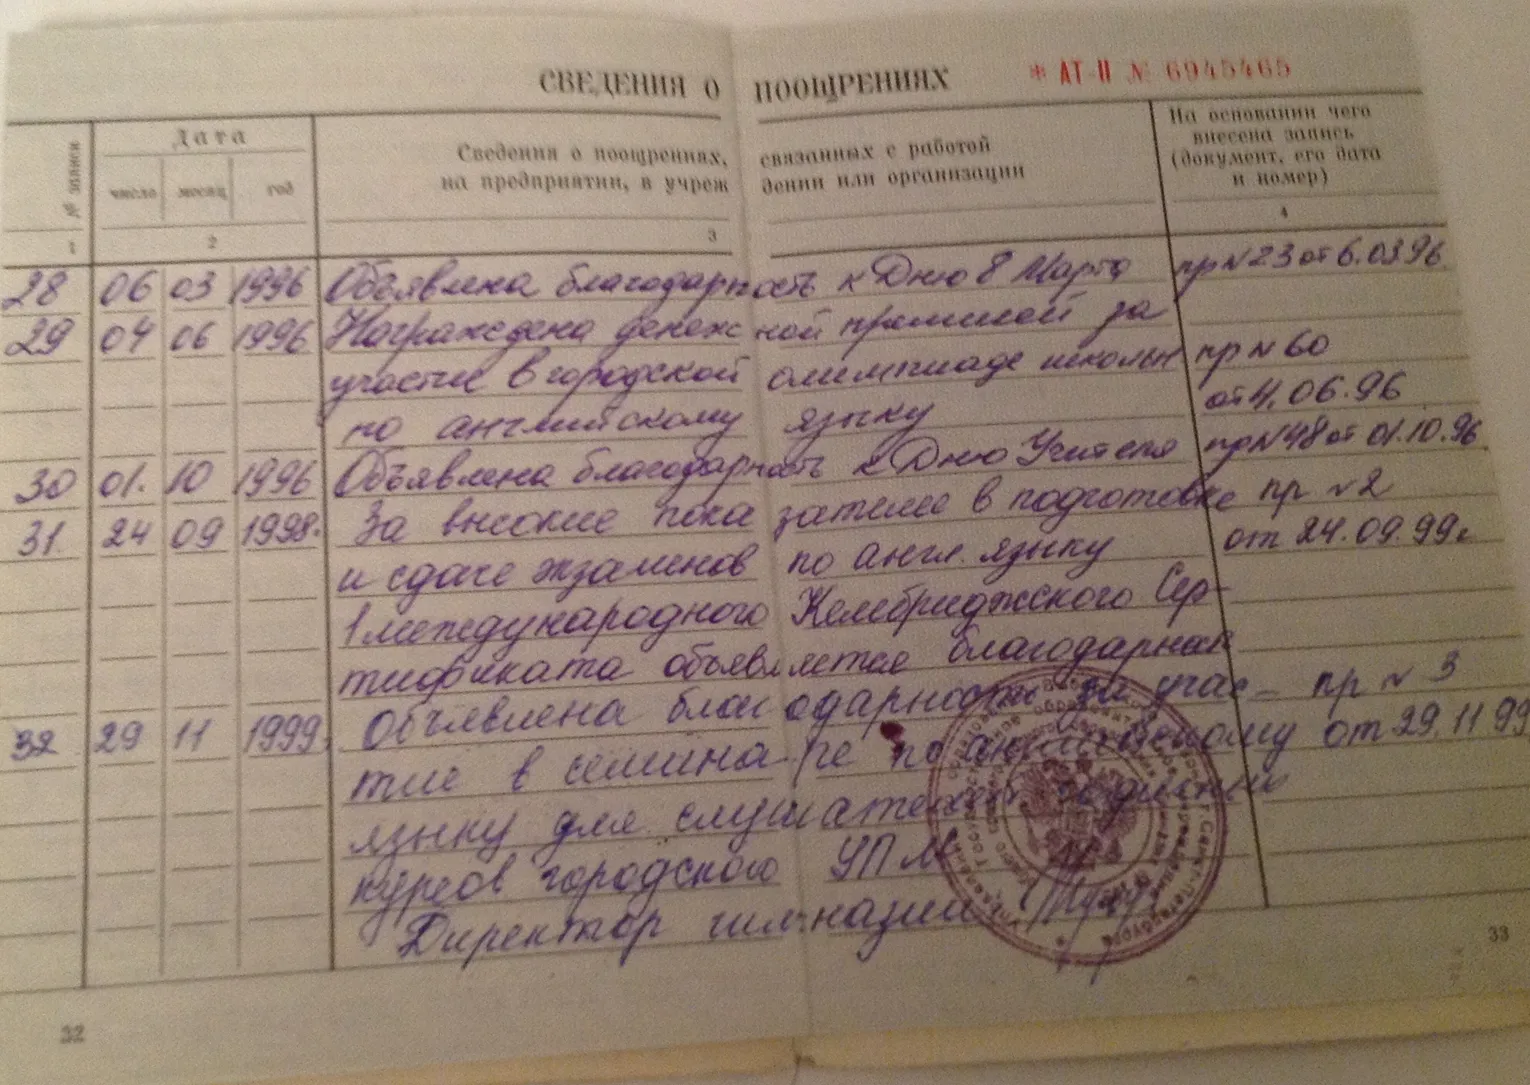 СВЕДЕНИЯ О ПООЩРЕНИЯХ
* АТ-II № 6945465
№ записи
Дата
число месяц год
Сведения о поощрениях, связанных с работой
на предприятии, в учреждении или организации
На основании чего
внесена запись
(документ, его дата
и номер)
1 2 3 4
28 06 03 1996 Объявлена благодарность к Дню 8 Марта пр №23 от 6.03.96
29 04 06 1996 Награждена денежной премией за
участие в городской олимпиаде школьн пр № 60
по английскому языку от 4.06.96
30 01. 10 1996 Объявлена благодарность к Дню Учителя пр №48 от 01.10.96
31. 24 09 1998. За высокие показатели в подготовке пр №2
и сдаче экзаменов по англ. языку от 24.09.99г
1 международного Кембриджского Сер-
тификата объявляется благодарност
32 29 11 1999. Объявлена благодарность за учас- пр № 3
тие в семинаре по английскому от 29.11 99
языку для слушателей
курсов городского УПМ
Директор гимназии
32
33